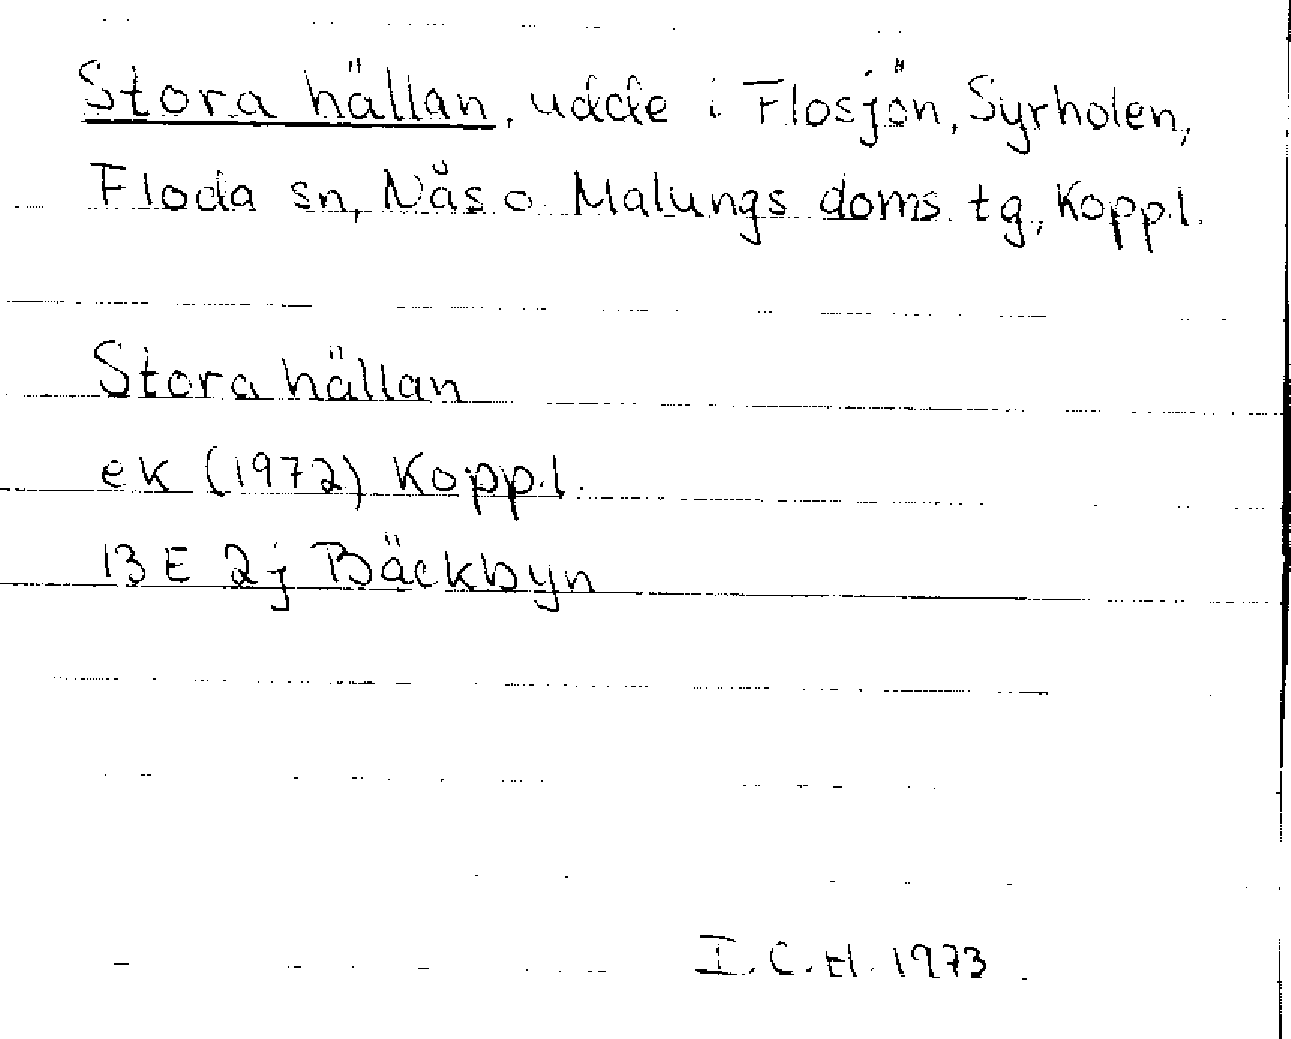 Stora hällan, udde i Flosjön, Syrholen,
Floda sn, Nås o Malungs doms. tg., Kopp.l.
Stora hällan
ek (1972) Kopp.l.
13 E 2j Bäckbyn
I.C.H. 1973